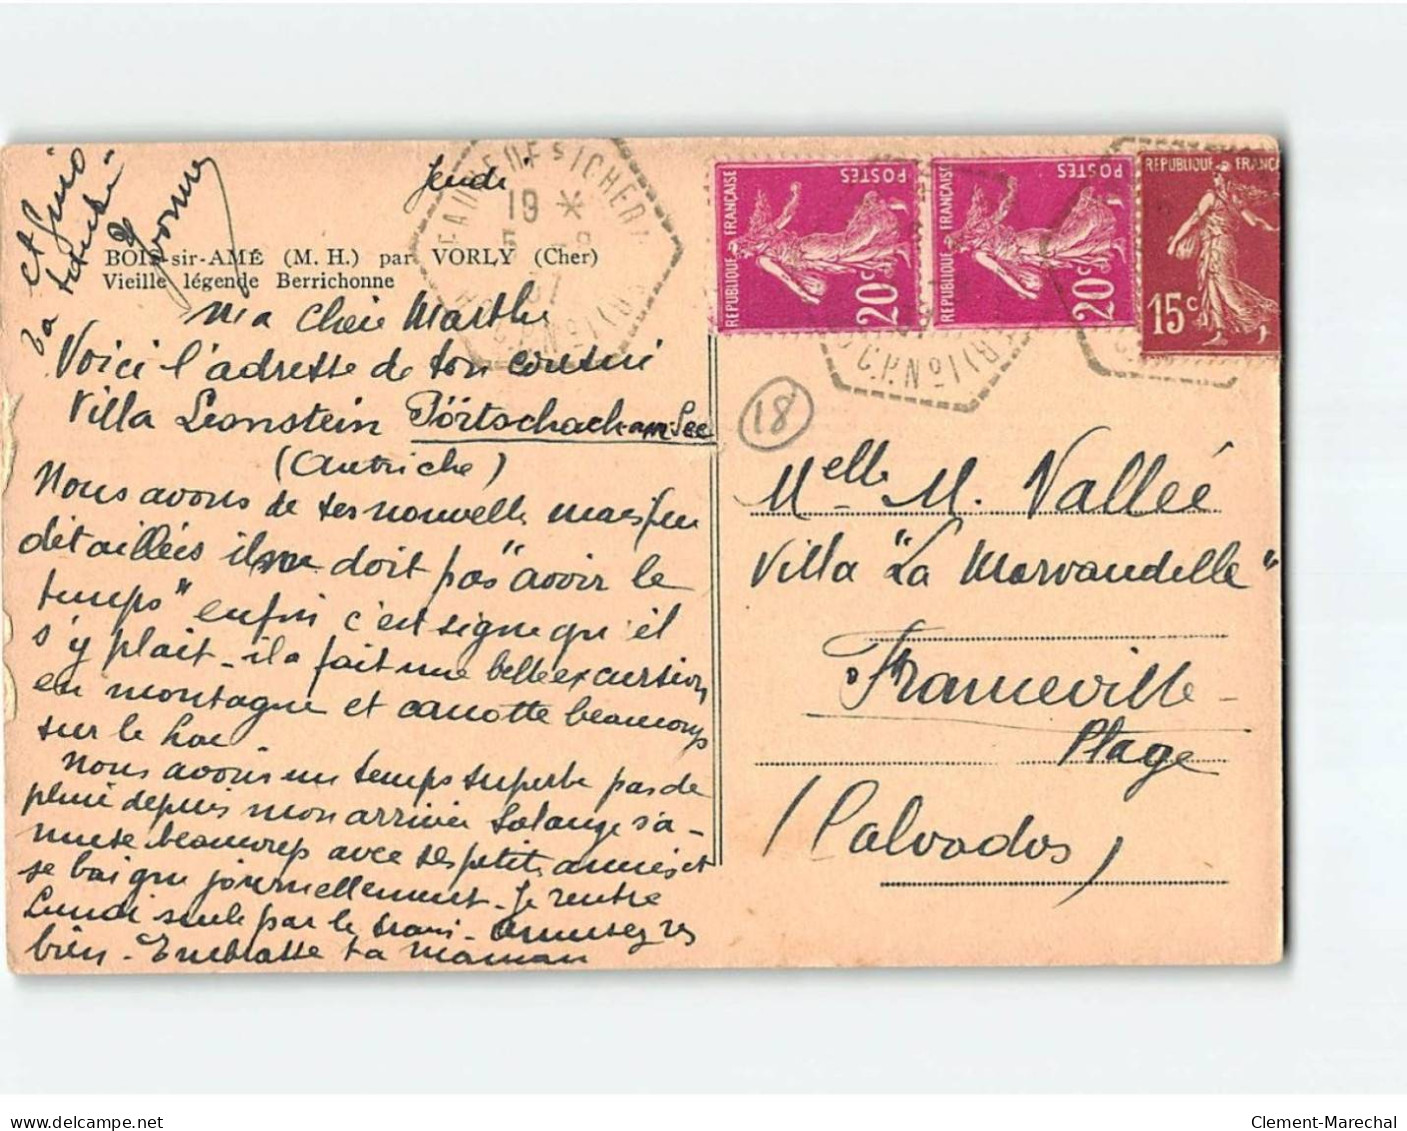 Jeudi
BOIS-sir-AMÉ (M. H.) par VORLY (Cher)
Vieille légende Berrichonne
Ma chère Marthe
Voici l'adresse de ton cousin
Villa Leonstein Pörtschach-am-See
(Autriche)
Nous avons de ses nouvelles mais peu
détaillées il ne doit pas "avoir le
temps" enfin c'est signe qu'il
s'y plait - il a fait une belle excursion
en montagne et canotte beaucoup
sur le lac
Nous avons un temps superbe pas de
pluie depuis mon arrivée Solange s'a-
muse beaucoup avec ses petits amies et
se baigne journellement - Je rentre
Lundi seule par le train - Amusez vs
bien - Embrasse ta maman
et
ta
Yvonne
REPUBLIQUE FRANÇAISE
POSTES
20c
REPUBLIQUE FRANÇAISE
POSTES
20c
REPUBLIQUE FRANÇA
15c
19 *
(CHER)
18
Melle M. Vallée
Villa "La Morvandelle"
Franceville-
Plage
(Calvados)
www.delcampe.net
Clement-Marechal